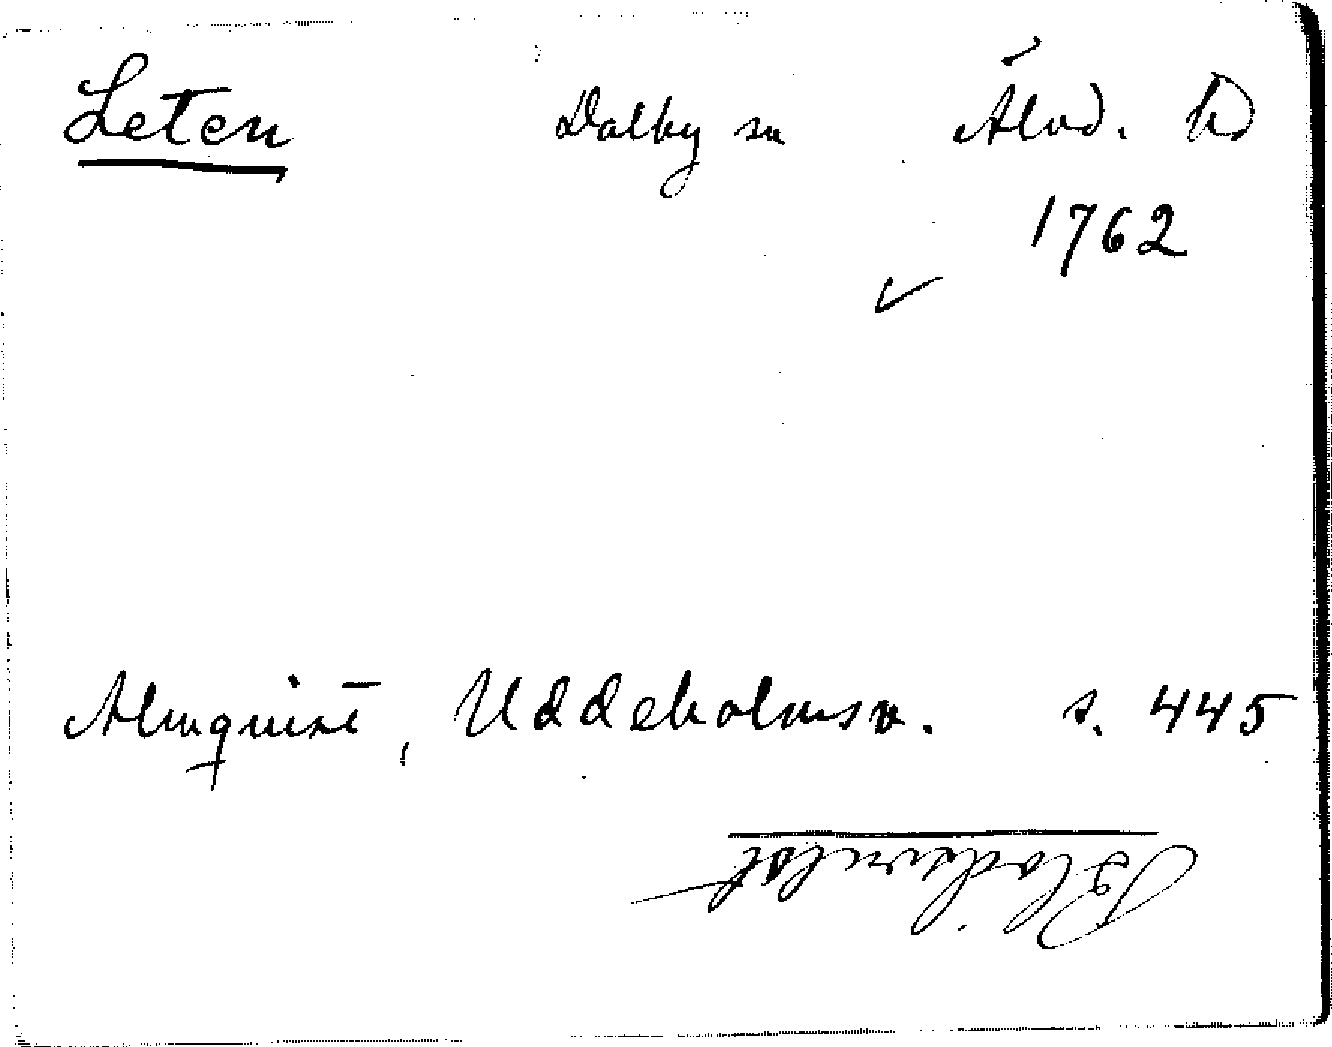 Leten Dalby sn Älvd. hd
1762
✓
Almquist, Uddeholmsv. s. 445